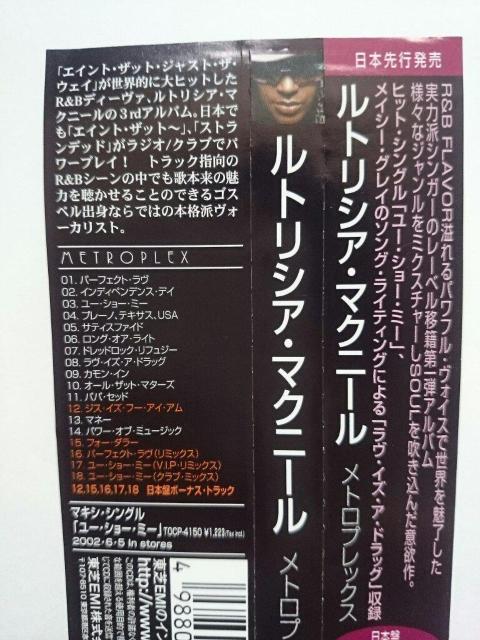 「エイント・ザット・ジャスト・ザ・
ウェイ」が世界的に大ヒットした
R&Bディーヴァ、ルトリシア・マ
クニールの3rdアルバム。日本で
も「エイント・ザット〜」、「ストラ
ンデッド」がラジオ/クラブでパ
ワープレイ! トラック指向の
R&Bシーンの中でも歌本来の魅
力を聴かせることのできるゴス
ペル出身ならではの本格派ヴォ
ーカリスト。
METROPLEX
01. パーフェクト・ラヴ
02. インディペンデンス・デイ
03. ユー・ショー・ミー
04. プレーノ、テキサス、USA
05. サティスファイド
06. ロング・オア・ライト
07. ドレッドロック・リフュジー
08. ラヴ・イズ・ア・ドラッグ
09. カモン・イン
10. オール・ザット・マターズ
11. パパ・セッド
12. ジス・イズ・フー・アイ・アム
13. マネー
14. パワー・オブ・ミュージック
15. フォー・ダラー
16 パーフェクト・ラヴ(リミックス)
17 ユー・ショー・ミー(V.I.P・リミックス)
18 ユー・ショー・ミー(クラブ・ミックス)
12,15,16,17,18 日本盤ボーナス・トラック
マキシ・シングル
「ユー・ショー・ミー」TOCP-4150 ¥1,223(Tax incl.)
2002・6・5 In stores
東芝EMIのイン
http://www
東芝EMI株式
〒107-8510 東京都
4 9880
ルトリシア・マクニール メトロプ
日本先行発売
R&B FLAVOR溢れるパワフル・ヴォイスで世界を魅了した
実力派シンガーのレーベル移籍第1弾アルバム
様々なジャンルをミクスチャーしSOULを吹き込んだ意欲作。
ヒット・シングル「ユー・ショー・ミー」、
メイシー・グレイのソング・ライティングによる「ラヴ・イズ・ア・ドラッグ」収録
ルトリシア・マクニール メトロプレックス
日本盤